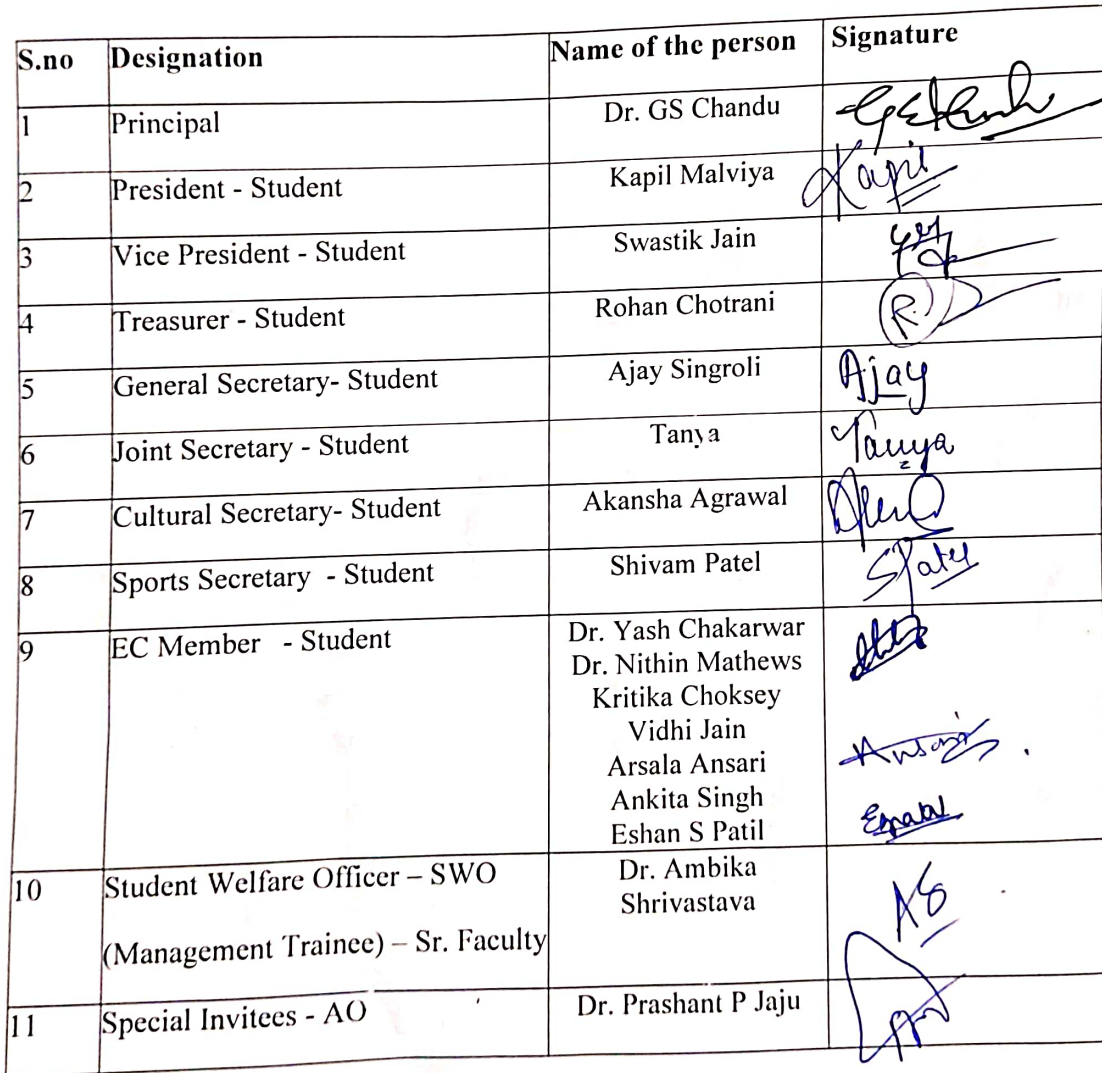 S.no Designation Name of the person Signature
1 Principal Dr. GS Chandu
2 President - Student Kapil Malviya Kapil
3 Vice President - Student Swastik Jain
4 Treasurer - Student Rohan Chotrani R
5 General Secretary- Student Ajay Singroli Ajay
6 Joint Secretary - Student Tanya Tanya
7 Cultural Secretary- Student Akansha Agrawal
8 Sports Secretary - Student Shivam Patel SPatel
9 EC Member - Student Dr. Yash Chakarwar
Dr. Nithin Mathews
Kritika Choksey
Vidhi Jain
Arsala Ansari Ansari
Ankita Singh
Eshan S Patil
10 Student Welfare Officer – SWO Dr. Ambika
Shrivastava AS
(Management Trainee) – Sr. Faculty
11 Special Invitees - AO Dr. Prashant P Jaju